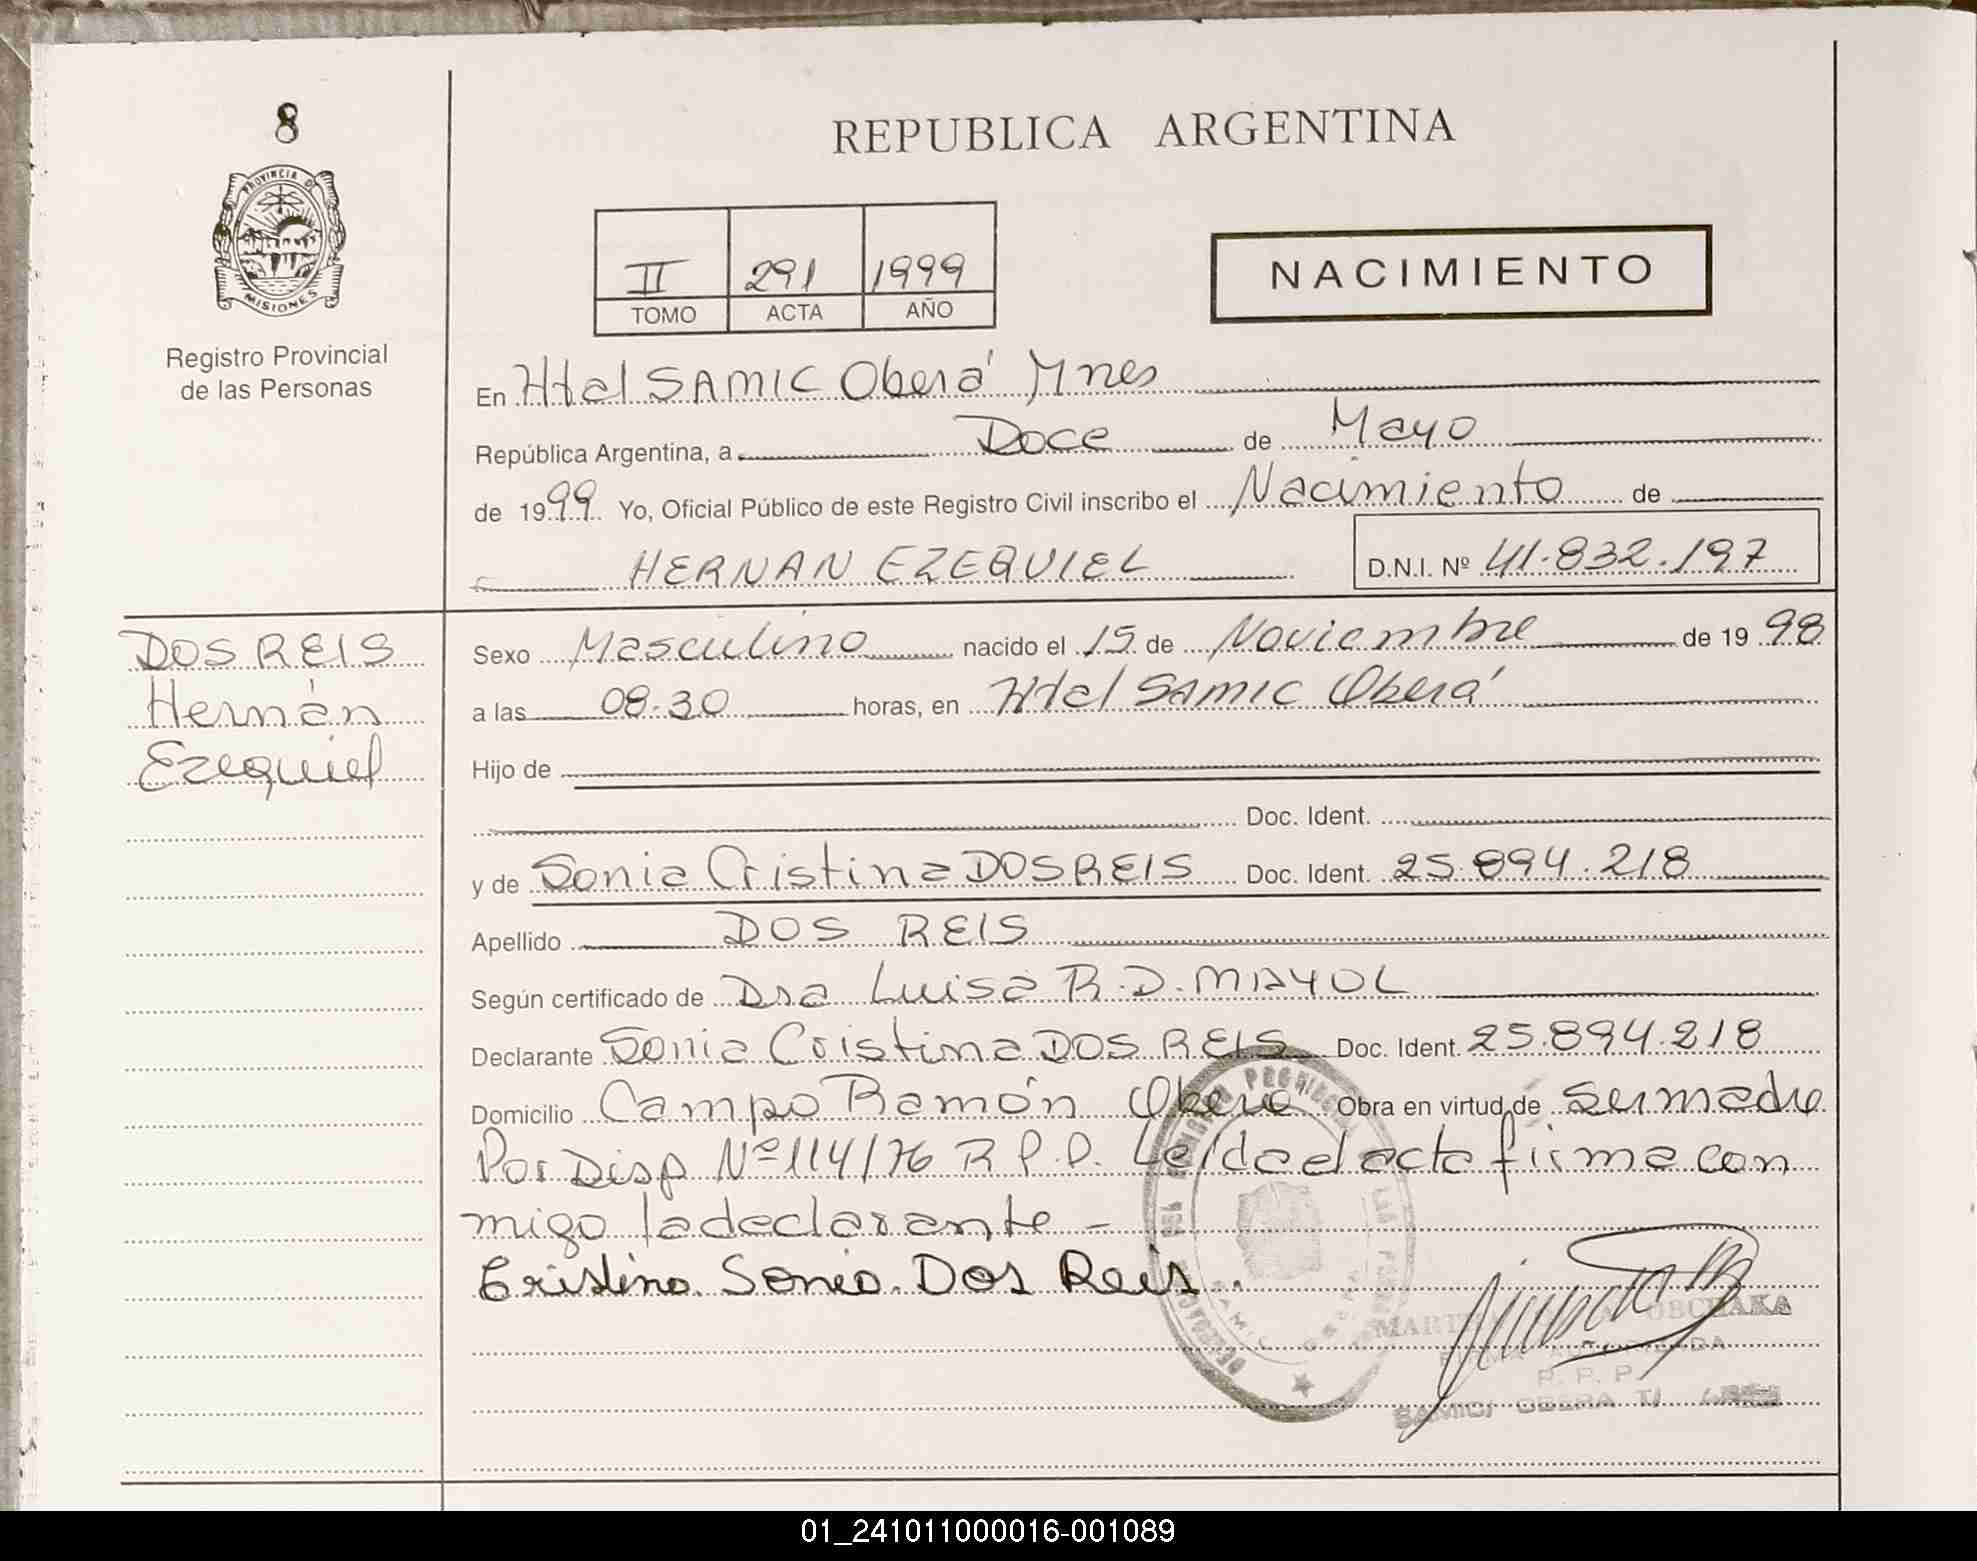 8
PROVINCIA D
MISIONES
Registro Provincial
de las Personas
REPUBLICA ARGENTINA
II 291 1999
TOMO ACTA AÑO
NACIMIENTO
En Htal SAMIC Oberá Mnes
República Argentina, a Doce de Mayo
de 1999 Yo, Oficial Público de este Registro Civil inscribo el Nacimiento de
HERNAN EZEQUIEL D.N.I. Nº 41.832.197
DOS REIS
Hernán
Ezequiel
Sexo Masculino nacido el 15 de Noviembre de 1998
a las 08.30 horas, en Htal SAMIC Oberá
Hijo de
Doc. Ident.
y de Sonia Cristina DOS REIS Doc. Ident. 25.894.218
Apellido DOS REIS
Según certificado de Dra Luisa R.D. MAYOL
Declarante Sonia Cristina DOS REIS Doc. Ident. 25.894.218
Domicilio Campo Ramón Oberá Obra en virtud de ser madre
Por Disp Nº 114/76 R P.P. Leída el acta firma con
migo la declarante -
Cristina Sonia Dos Reis.
OBCHAKA
R. P. P.
SAMIC OBERA
01_241011000016-001089